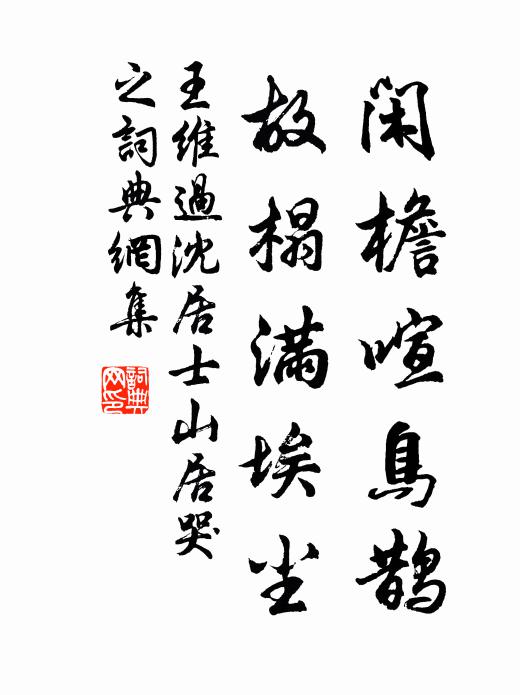 闲檐喧鳥鹊
故榻满埃尘
王维過沈居士山居哭
之詞典網集
詞典网印